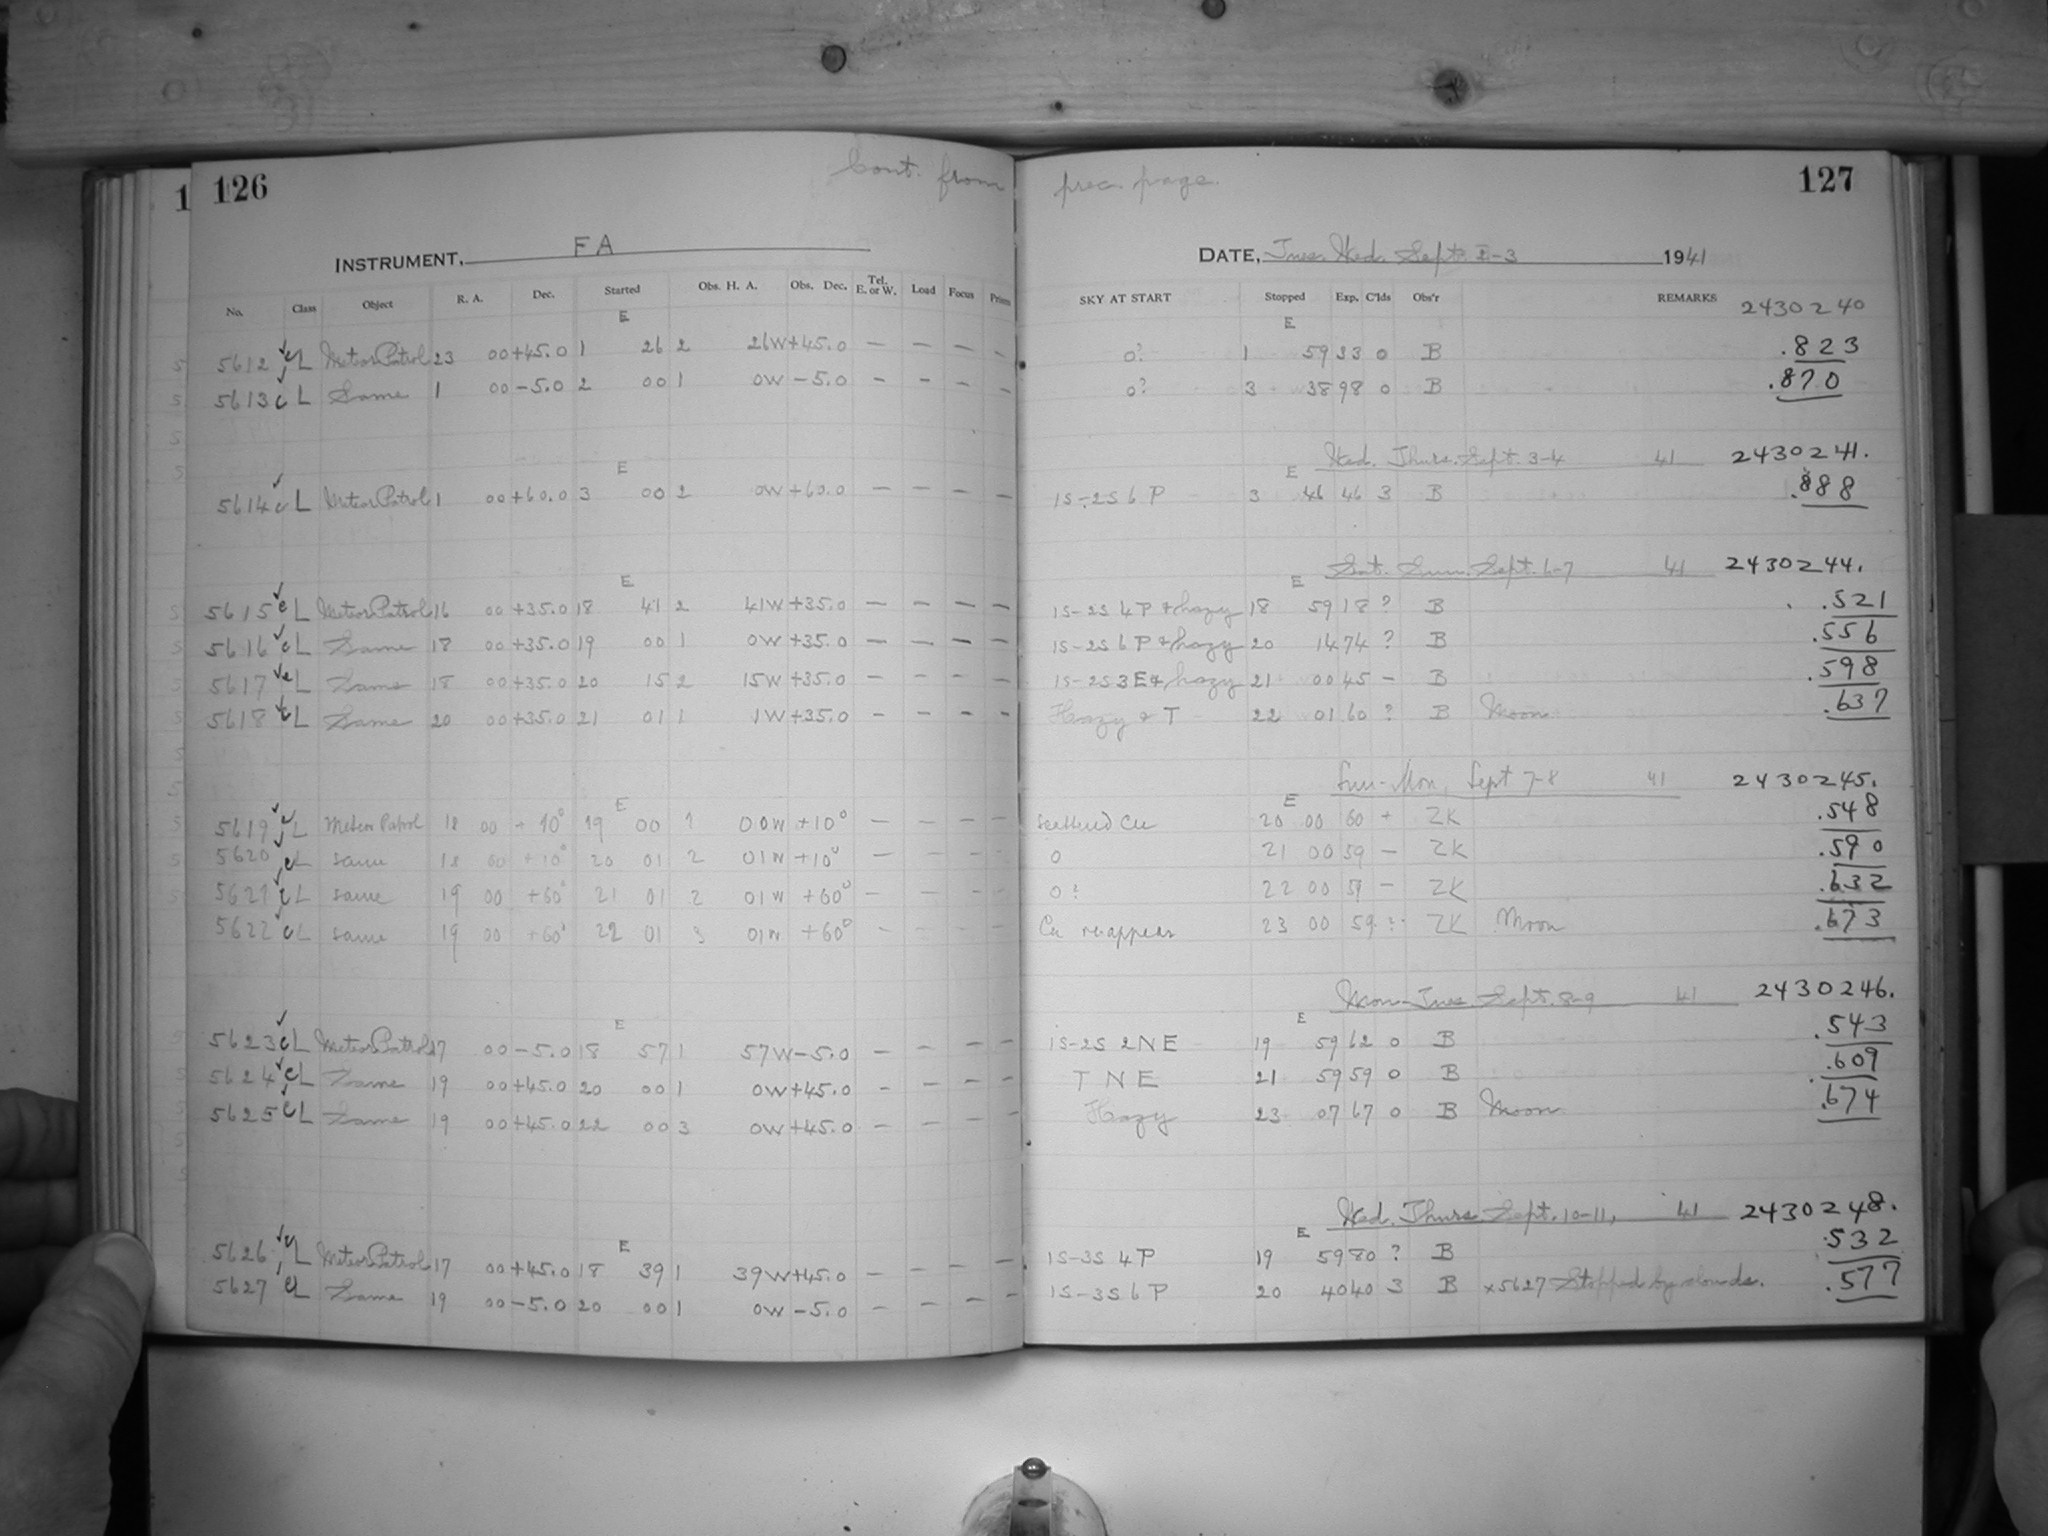 1 126 Cont. from prec. page. 127
INSTRUMENT, FA DATE, Tues. Wed. Sept. 2-3 1941
No. Class Object R. A. Dec. Started Obs. H. A. Obs. Dec. Tel. E. or W. Load Focus Prism SKY AT START Stopped Exp. C'lds Obs'r REMARKS 2430240
E E
5612 cL Meteor Patrol 23 00 +45.0 1 26 2 26W +45.0 — — — — 0? 1 59 33 0 B .823
5613 cL Same 1 00 -5.0 2 00 1 0W -5.0 - - - - 0? 3 38 98 0 B .870
E E Wed. Thurs. Sept. 3-4 41 2430241.
5614 cL Meteor Patrol 1 00 +60.0 3 00 2 0W +60.0 — — — — 1S-2S 6 P 3 46 46 3 B .888
E E Sat. Sun. Sept. 6-7 41 2430244.
5615 cL Meteor Patrol 16 00 +35.0 18 41 2 41W +35.0 — — — — 1S-2S 4 P + hazy 18 59 18 ? B .521
5616 cL Same 18 00 +35.0 19 00 1 0W +35.0 — — — — 1S-2S 6 P + hazy 20 14 74 ? B .556
5617 cL Same 18 00 +35.0 20 15 2 15W +35.0 — — — — 1S-2S 3 E + hazy 21 00 45 - B .598
5618 cL Same 20 00 +35.0 21 01 1 1W +35.0 - - - - Hazy & T 22 01 60 ? B Moon .637
E E Sun-Mon, Sept 7-8 41 2430245.
5619 cL Meteor Patrol 18 00 + 10° 19 00 1 00W +10° — — — — scattered Cu 20 00 60 + ZK .548
5620 cL same 18 00 + 10° 20 01 2 01W +10° — — — — 0 21 00 59 - ZK .590
5621 cL same 19 00 +60° 21 01 2 01W +60° - - - - 0? 22 00 59 - ZK .632
5622 cL same 19 00 +60° 22 01 3 01W +60° - - - - Cu re-appear 23 00 59 ZK Moon .673
E E Mon-Tues. Sept. 8-9 41 2430246.
5623 cL Meteor Patrol 17 00 -5.0 18 57 1 57W -5.0 — — — — 1S-2S 2NE 19 59 62 0 B .543
5624 cL Same 19 00 +45.0 20 00 1 0W +45.0 — — — — T N E 21 59 59 0 B .609
5625 cL Same 19 00 +45.0 22 00 3 0W +45.0 — — — — Hazy 23 07 67 0 B Moon .674
E E Wed. Thurs. Sept. 10-11, 41 2430248.
5626 cL Meteor Patrol 17 00 +45.0 18 39 1 39W +45.0 — — — — 1S-3S 4 P 19 59 80 ? B .532
5627 cL Same 19 00 -5.0 20 00 1 0W -5.0 — — — — 1S-3S 6 P 20 40 40 3 B x5627 Stopped by clouds. .577